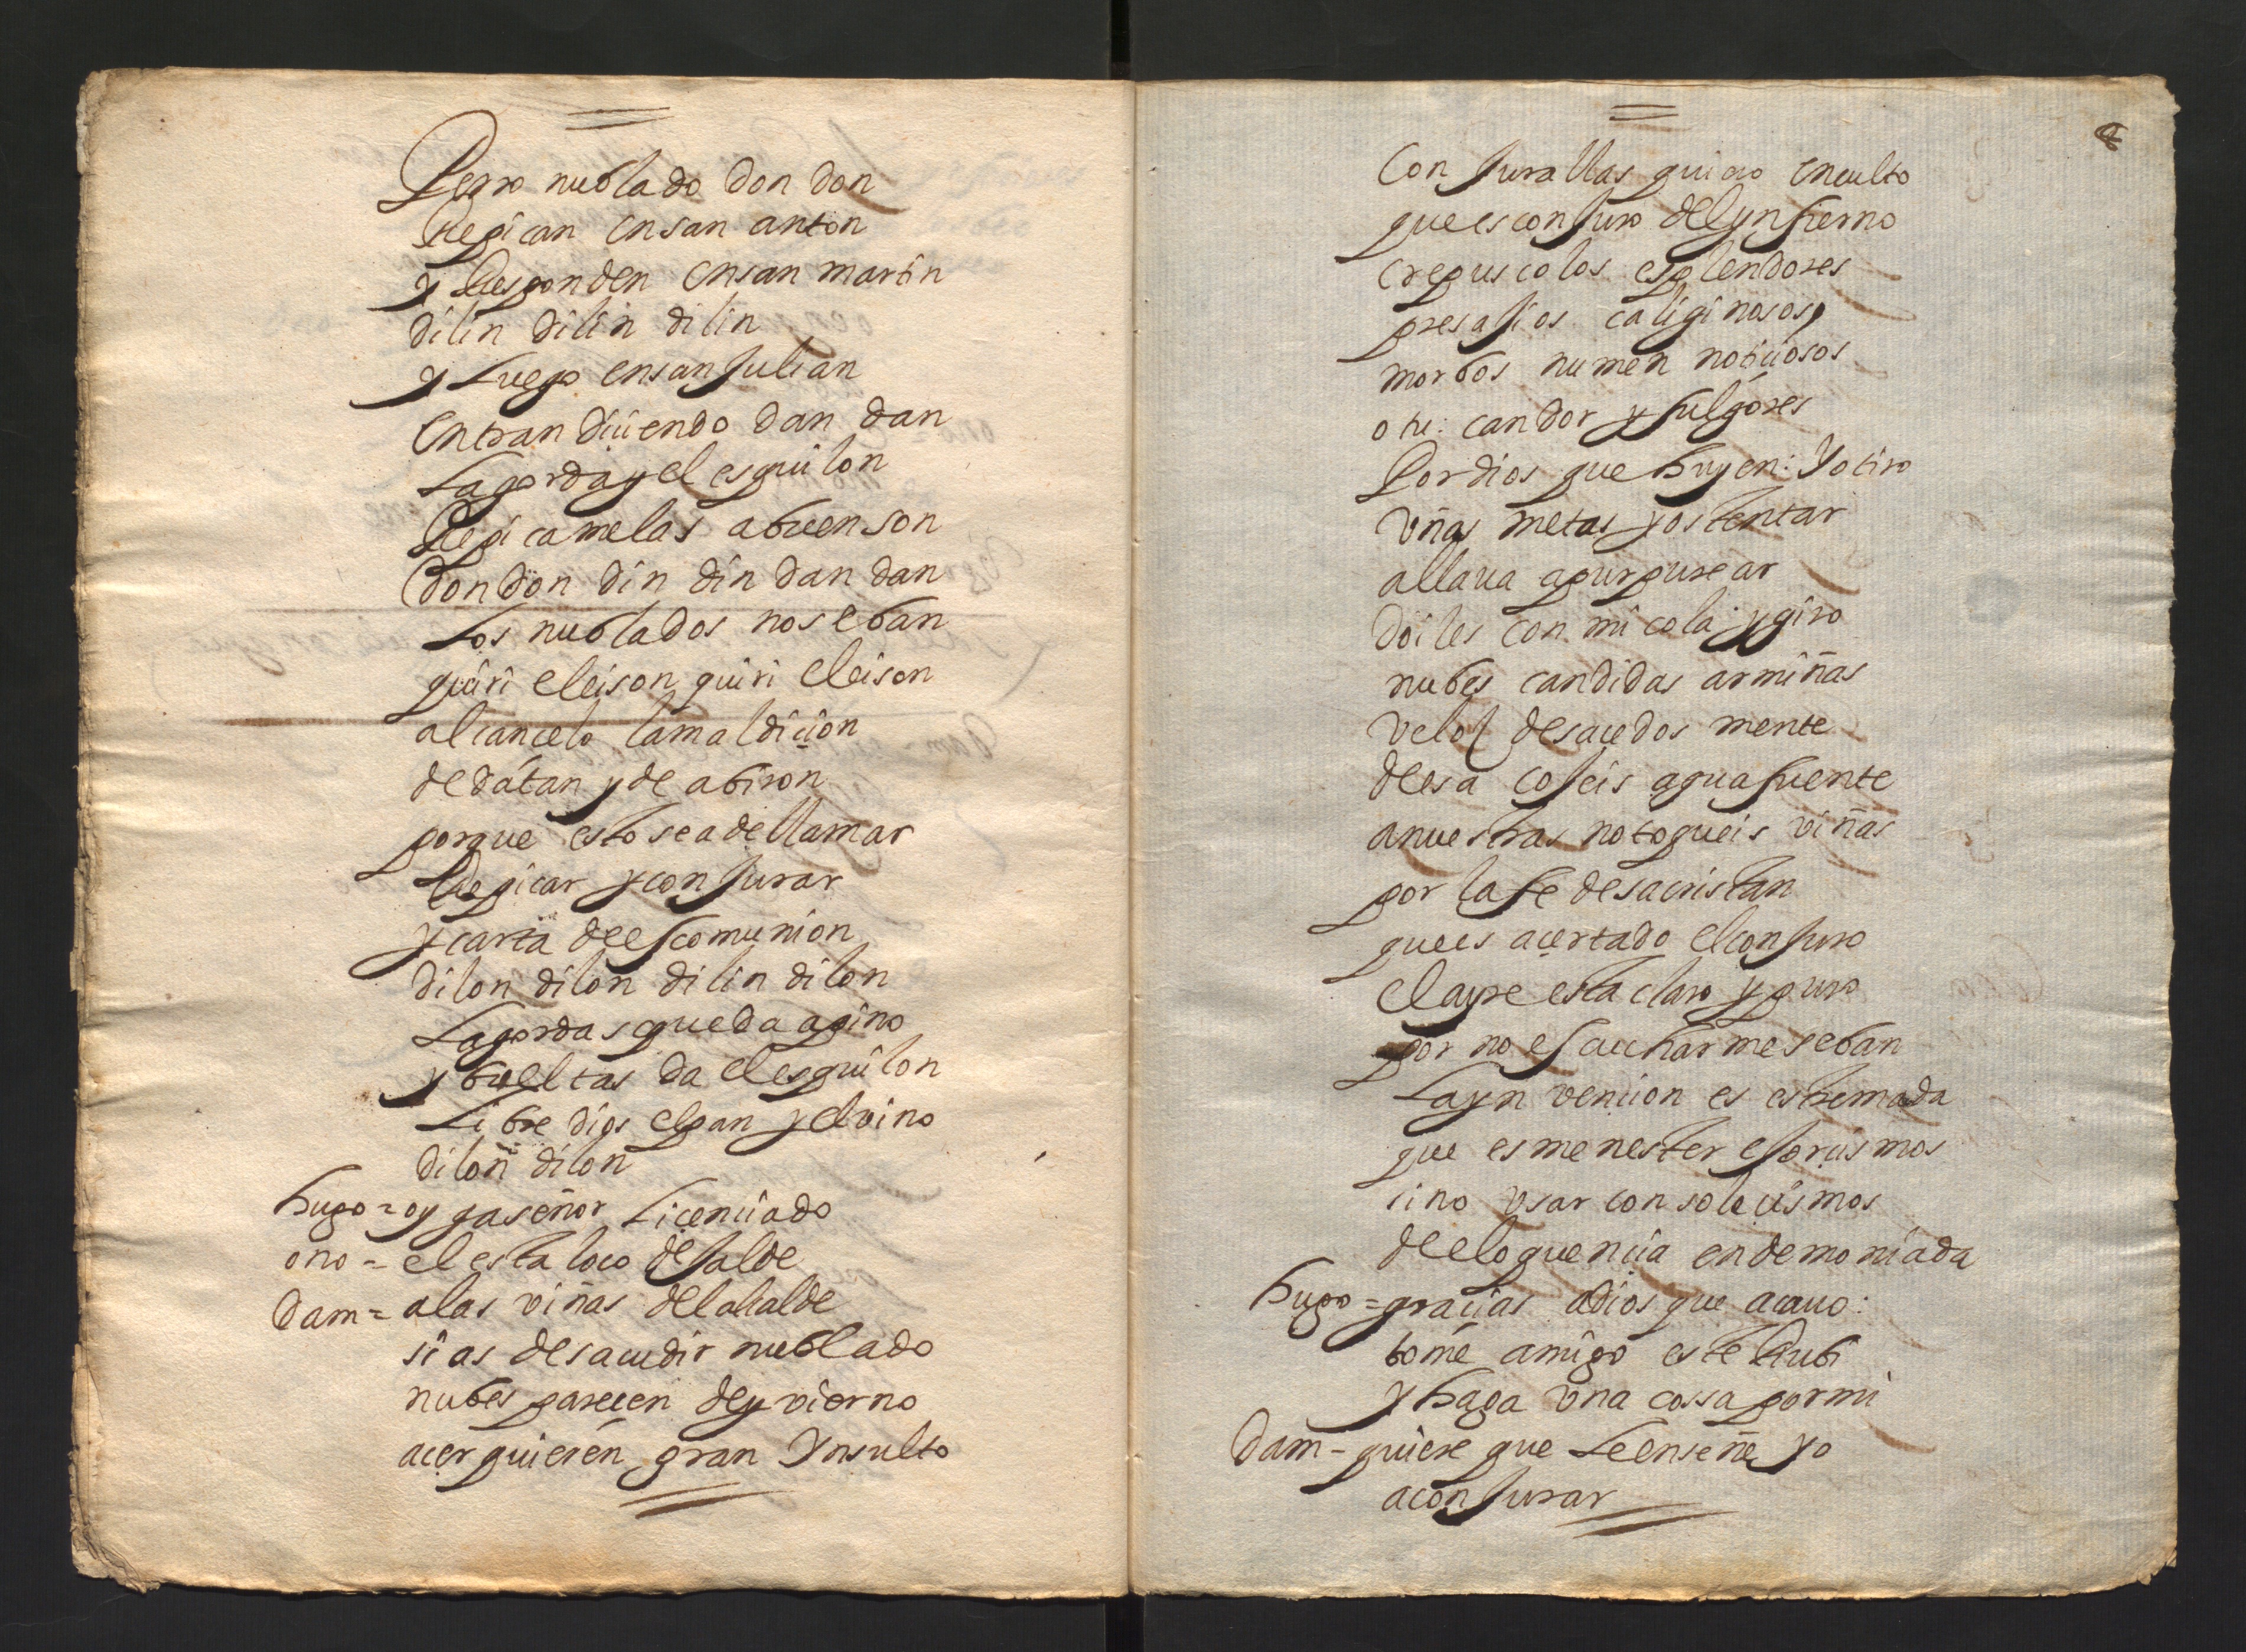 Perro nublado don don
Repican en san anton
y Responden en san martin
dilin dilin dilin
y Luego en san Julian
entran diciendo dan dan
La gorda y el esquilon
Repicamelas a buen son
don don din din dan dan
Los nublados nos e ban
quiri eleison quiri eleison
alcancelo la maldicion
de dátan y de abiron
porque esto se a de llamar
Repicar y conjurar
y carta de escomunion
dilon dilon dilin dilon
La gorda se queda a pino
y bueltas da el esquilon
Libre dios el pan y el vino
dilon dilon
hugo = oyga señor Licenciado
ono = el esta loco de Jalde
Dam = a las viñas del alcalde
si as de sacudir nublado
nubes parecen de yvierno
acer quieren gran Ynsulto
8
Conjurallas quiero en culto
que es conjuro del ynfierno
crepuscolos esplendores
presajios caliginosos,
morbos numen noticiosos
o tu: candor y fulgóres
Por dios que huyen: Yo tiro
vñas metas y ostentar
alla va a purpurear
doiles con mi cola: y giro
nubes candidas armiñas
veloz desacedos mente
de esa cojeis agua fuente
a nuestras no toqueis viñas
por la fe de sacristan
que es acertado el conjuro
el ayre esta claro y puro
por no escucharme se ban
La ynvencion es estremada
que es menester esorcismos
sino vsar con solecismos
de eloquencia endemoniada
hugo = gracias a dios que acauo:
tome amigo este Rubi
y haga vna cossa por mi
Dam - quiere que Le enseñe yo
a conjurar